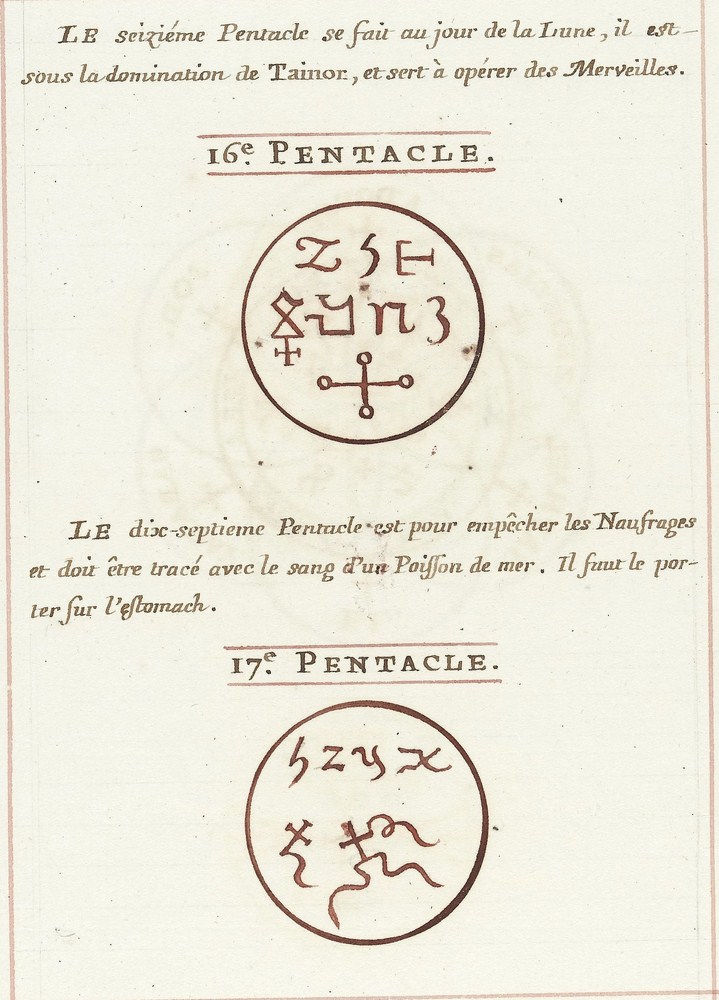 LE seiziéme Pentacle se fait au jour de la Lune, il est
sous la domination de Tainor, et sert à opérer des Merveilles.
16.e PENTACLE.
LE dix-septieme Pentacle est pour empêcher les Naufrages
et doit être tracé avec le sang d'un Poisson de mer. Il faut le por-
ter sur l'estomach.
17.e PENTACLE.